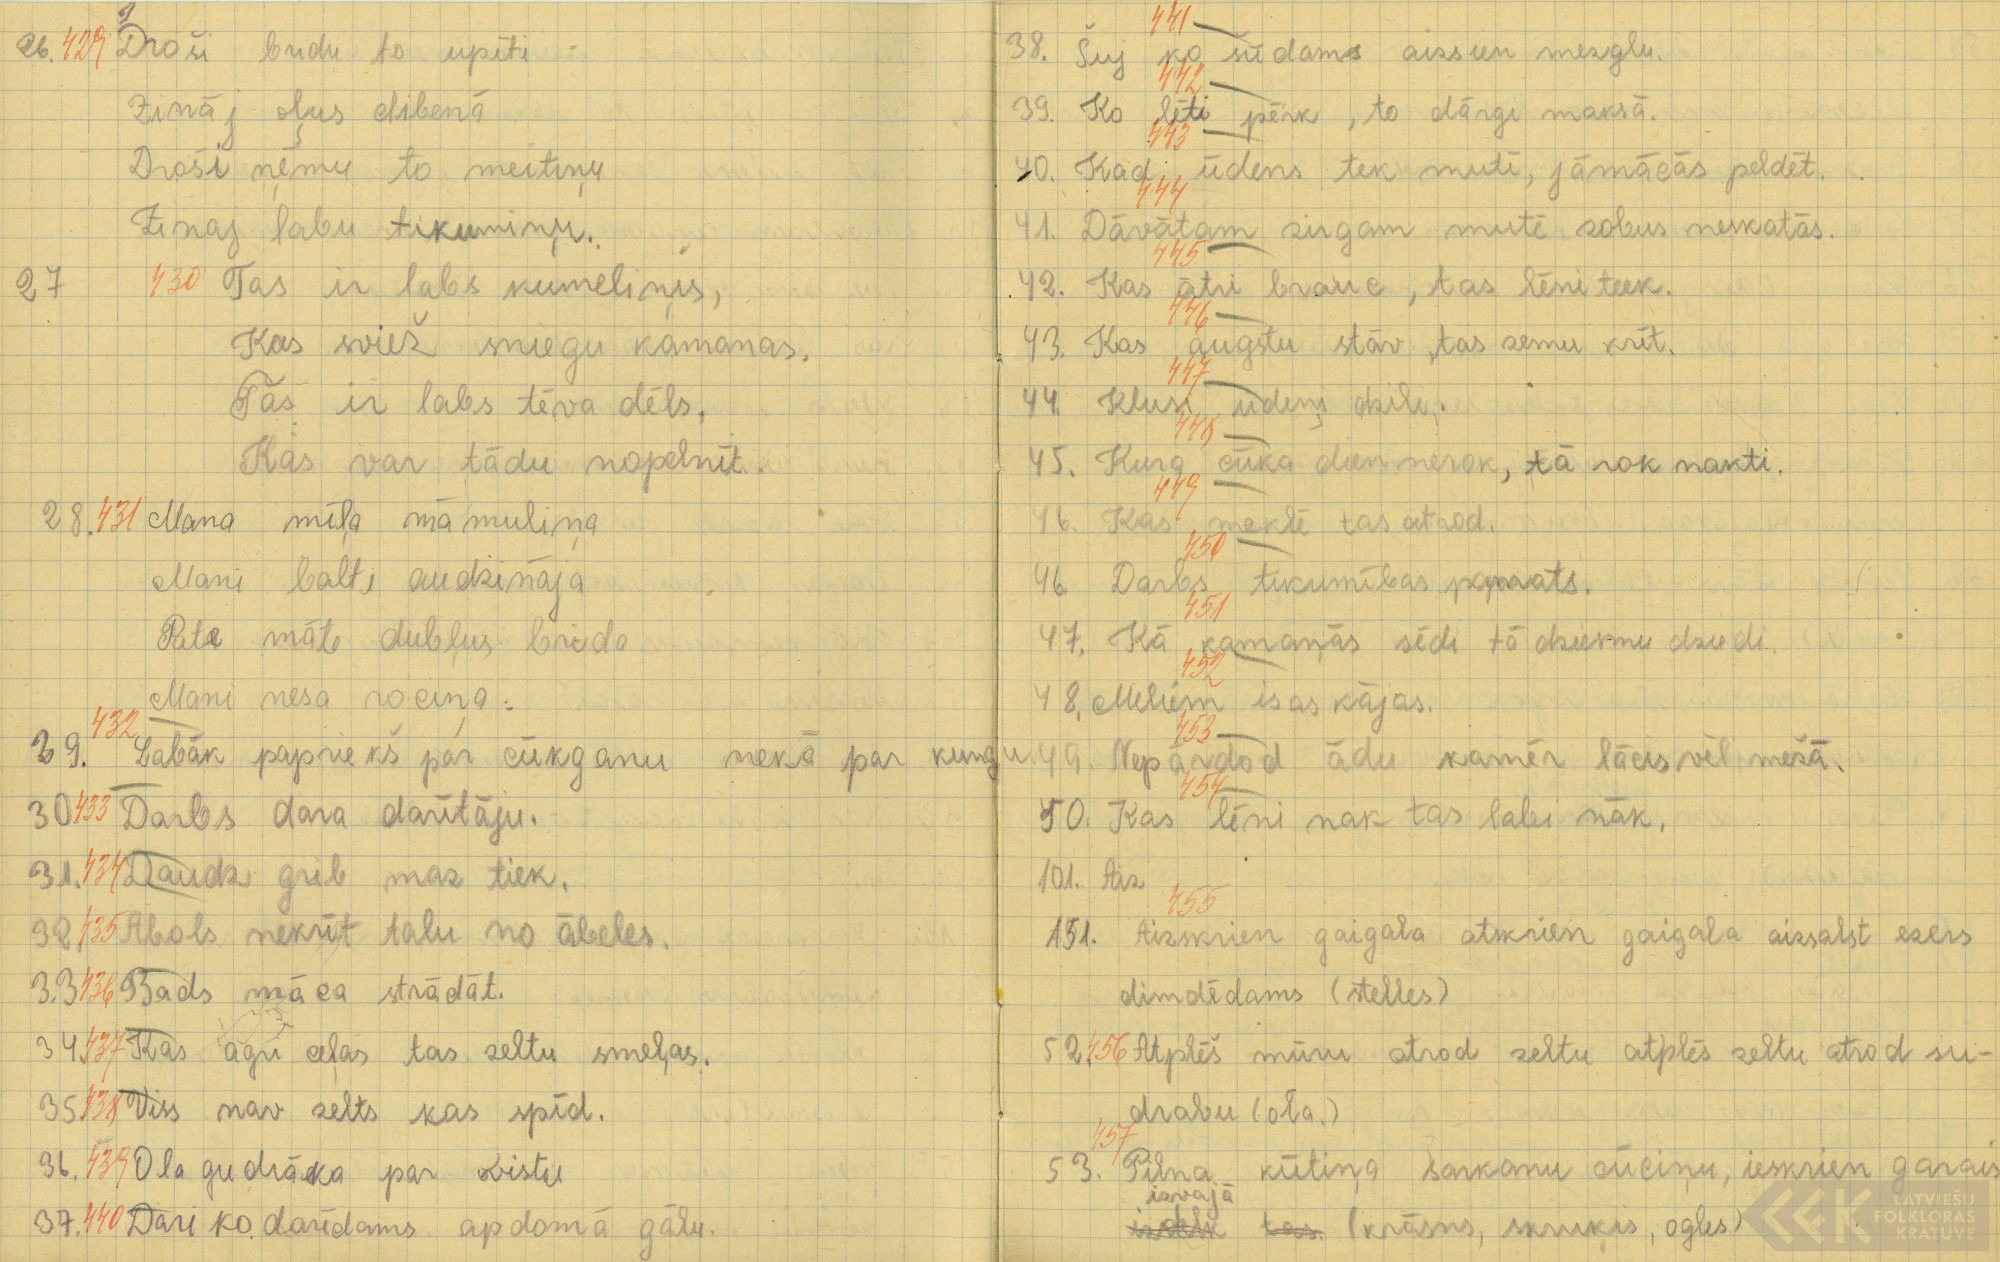 26. 429 Droši bridu to upīti
Zināj oļus dibenā
Droši ņēmu to meitiņu
Zinaj labu tikumiņu.
27 430 Tas ir labs kumeliņis,
Kas sviež sniegu kamanas,
Tas ir labs tēva dēls,
Kas var tādu nopelnīt.
28. 431 Mana mīļa māmuliņa
Mani balti audzināja
Pate māte dubļus brida
Mani nesa rociņa.
432
29. Labāk papriekš par cūkganu nekā par kungu
30 433 Darbs dara darītāju.
31. 434 Daudz grib maz tiek.
32. 435 Abols nekrīt talu no ābeles.
33 436 Bads māca strādāt.
34. 437 Kas agri ceļas tas zeltu smeļas.
35. 438 Viss nav zelts kas spīd.
36. 439 Ola gudrāka par vistu
37. 440 Dari ko darīdams apdomā gālu.
441
38. Šuj ko šūdams aizsien mezglu.
442
39. Ko lēti pērk, to dārgi maksā.
443
40. Kad ūdens tek mutē, jāmācās peldēt.
444
41. Dāvātam zirgam mutē zobus neskatās.
445
42. Kas ātri brauc, tas lēni tiek.
446
43. Kas augstu stāv, tas zemu krīt.
447
44. Klusi ūdeņi dziļi.
448
45. Kura cūka dien nerok, tā rok nakti.
449
46. Kas meklē tas atrod.
450
46. Darbs tikumības pamats.
451
47. Kā kamaņās sēdi tā dziesmu dziedi.
452
48. Meliem isas kājas.
453
49. Nepārdod ādu kamēr lācis vēl mežā.
454
50. Kas lēni nak tas labi nāk.
101. Aiz
455
151. Aizskrien gaigala atskrien gaigala aizsalst ezers
dimdēdams (stelles)
52. 456 Atplēš mūru atrod zeltu atplēš zeltu atrod su-
drabu (ola.)
457
53. Pilna kūtiņa sarkanu cūciņu, ieskrien garais
izvajā
izdzik tas (krāsns, skruķis, ogles)
LATVIEŠU
FOLKLORAS
KRĀTUVE